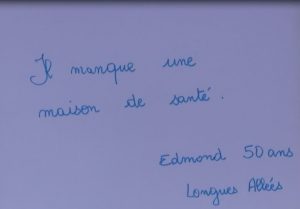 Il manque une
maison de santé.
Edmond 50 ans
Longues Allées